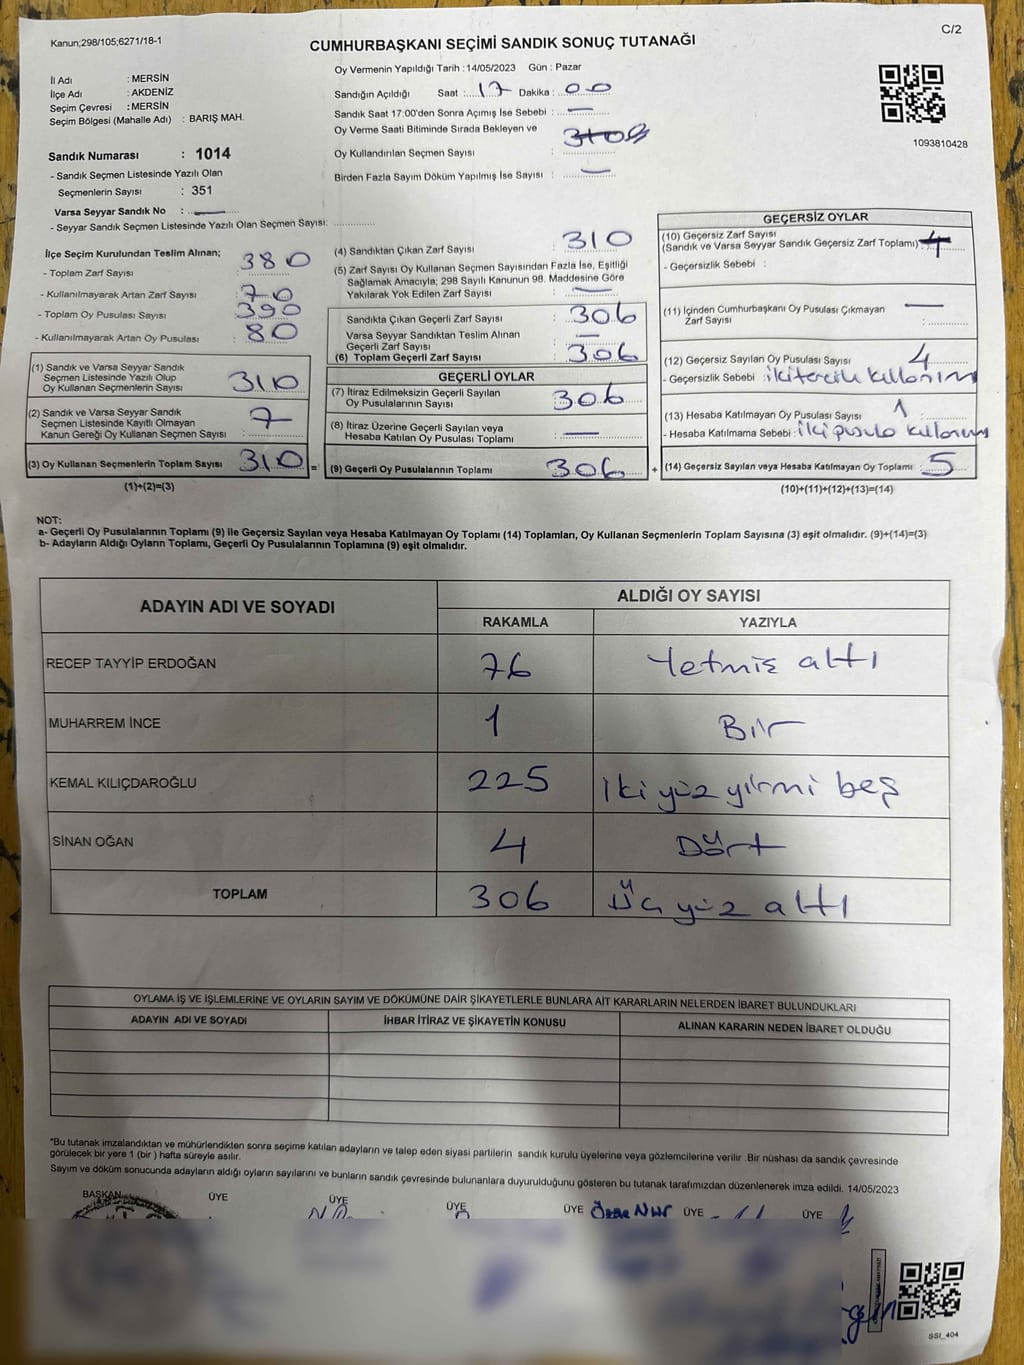 Kanun;298/105;6271/18-1
C/2
CUMHURBAŞKANI SEÇİMİ SANDIK SONUÇ TUTANAĞI
Oy Vermenin Yapıldığı Tarih : 14/05/2023 Gün : Pazar
İl Adı : MERSİN
İlçe Adı : AKDENİZ
Seçim Çevresi : MERSİN
Seçim Bölgesi (Mahalle Adı) : BARIŞ MAH.
Sandık Numarası : 1014
- Sandık Seçmen Listesinde Yazılı Olan
Seçmenlerin Sayısı : 351
Varsa Seyyar Sandık No : —
- Seyyar Sandık Seçmen Listesinde Yazılı Olan Seçmen Sayısı:
Sandığın Açıldığı Saat : 17 Dakika : 00
Sandık Saat 17:00'den Sonra Açımış İse Sebebi : —
Oy Verme Saati Bitiminde Sırada Bekleyen ve
Oy Kullandırılan Seçmen Sayısı :
Birden Fazla Sayım Döküm Yapılmış İse Sayısı : —
1093810428
İlçe Seçim Kurulundan Teslim Alınan;
- Toplam Zarf Sayısı : 380
- Kullanılmayarak Artan Zarf Sayısı : 70
- Toplam Oy Pusulası Sayısı : 390
- Kullanılmayarak Artan Oy Pusulası : 80
(1) Sandık ve Varsa Seyyar Sandık
Seçmen Listesinde Yazılı Olup
Oy Kullanan Seçmenlerin Sayısı : 310
(2) Sandık ve Varsa Seyyar Sandık
Seçmen Listesinde Kayıtlı Olmayan
Kanun Gereği Oy Kullanan Seçmen Sayısı : 7
(3) Oy Kullanan Seçmenlerin Toplam Sayısı : 310 =
(1)+(2)=(3)
(4) Sandıktan Çıkan Zarf Sayısı : 310
(5) Zarf Sayısı Oy Kullanan Seçmen Sayısından Fazla İse, Eşitliği
Sağlamak Amacıyla; 298 Sayılı Kanunun 98. Maddesine Göre
Yakılarak Yok Edilen Zarf Sayısı : —
Sandıkta Çıkan Geçerli Zarf Sayısı : 306
Varsa Seyyar Sandıktan Teslim Alınan
Geçerli Zarf Sayısı : —
(6) Toplam Geçerli Zarf Sayısı : 306
GEÇERLİ OYLAR
(7) İtiraz Edilmeksizin Geçerli Sayılan
Oy Pusulalarının Sayısı : 306
(8) İtiraz Üzerine Geçerli Sayılan veya
Hesaba Katılan Oy Pusulası Toplamı : —
(9) Geçerli Oy Pusulalarının Toplamı : 306 +
GEÇERSİZ OYLAR
(10) Geçersiz Zarf Sayısı
(Sandık ve Varsa Seyyar Sandık Geçersiz Zarf Toplamı) : 4
- Geçersizlik Sebebi :
(11) İçinden Cumhurbaşkanı Oy Pusulası Çıkmayan
Zarf Sayısı : —
(12) Geçersiz Sayılan Oy Pusulası Sayısı : 4
- Geçersizlik Sebebi : iki tercih kullanım
(13) Hesaba Katılmayan Oy Pusulası Sayısı : 1
- Hesaba Katılmama Sebebi : iki pusula kullanım
(14) Geçersiz Sayılan veya Hesaba Katılmayan Oy Toplamı : 5
(10)+(11)+(12)+(13)=(14)
NOT:
a- Geçerli Oy Pusulalarının Toplamı (9) ile Geçersiz Sayılan veya Hesaba Katılmayan Oy Toplamı (14) Toplamları, Oy Kullanan Seçmenlerin Toplam Sayısına (3) eşit olmalıdır. (9)+(14)=(3)
b- Adayların Aldığı Oyların Toplamı, Geçerli Oy Pusulalarının Toplamına (9) eşit olmalıdır.
ADAYIN ADI VE SOYADI ALDIĞI OY SAYISI
RAKAMLA YAZIYLA
RECEP TAYYİP ERDOĞAN 76 Yetmiş altı
MUHARREM İNCE 1 Bir
KEMAL KILIÇDAROĞLU 225 İki yüz yirmi beş
SİNAN OĞAN 4 Dört
TOPLAM 306 Üç yüz altı
OYLAMA İŞ VE İŞLEMLERİNE VE OYLARIN SAYIM VE DÖKÜMÜNE DAİR ŞİKAYETLERLE BUNLARA AİT KARARLARIN NELERDEN İBARET BULUNDUKLARI
ADAYIN ADI VE SOYADI İHBAR İTİRAZ VE ŞİKAYETİN KONUSU ALINAN KARARIN NEDEN İBARET OLDUĞU
*Bu tutanak imzalandıktan ve mühürlendikten sonra seçime katılan adayların ve talep eden siyasi partilerin sandık kurulu üyelerine veya gözlemcilerine verilir .Bir nüshası da sandık çevresinde
görülecek bir yere 1 (bir ) hafta süreyle asılır.
Sayım ve döküm sonucunda adayların aldığı oyların sayılarını ve bunların sandık çevresinde bulunanlara duyurulduğunu gösteren bu tutanak tarafımızdan düzenlenerek imza edildi. 14/05/2023
BAŞKAN ÜYE ÜYE ÜYE ÜYE ÜYE ÜYE
SSI_404